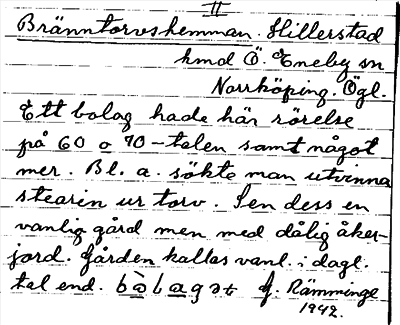 II
Bränntorvshemman. Hillerstad
hmd Ö. Eneby sn
Norrköping. Ögl.
Ett bolag hade här rörelse
på 60 o 70-talen samt något
mer. Bl. a. sökte man utvinna
stearin ur torv. Sen dess en
vanlig gård men med dålig åker-
jord. Gården kallas vanl. i dagl.
tal end. bòlagət G. Rämminge
1942.